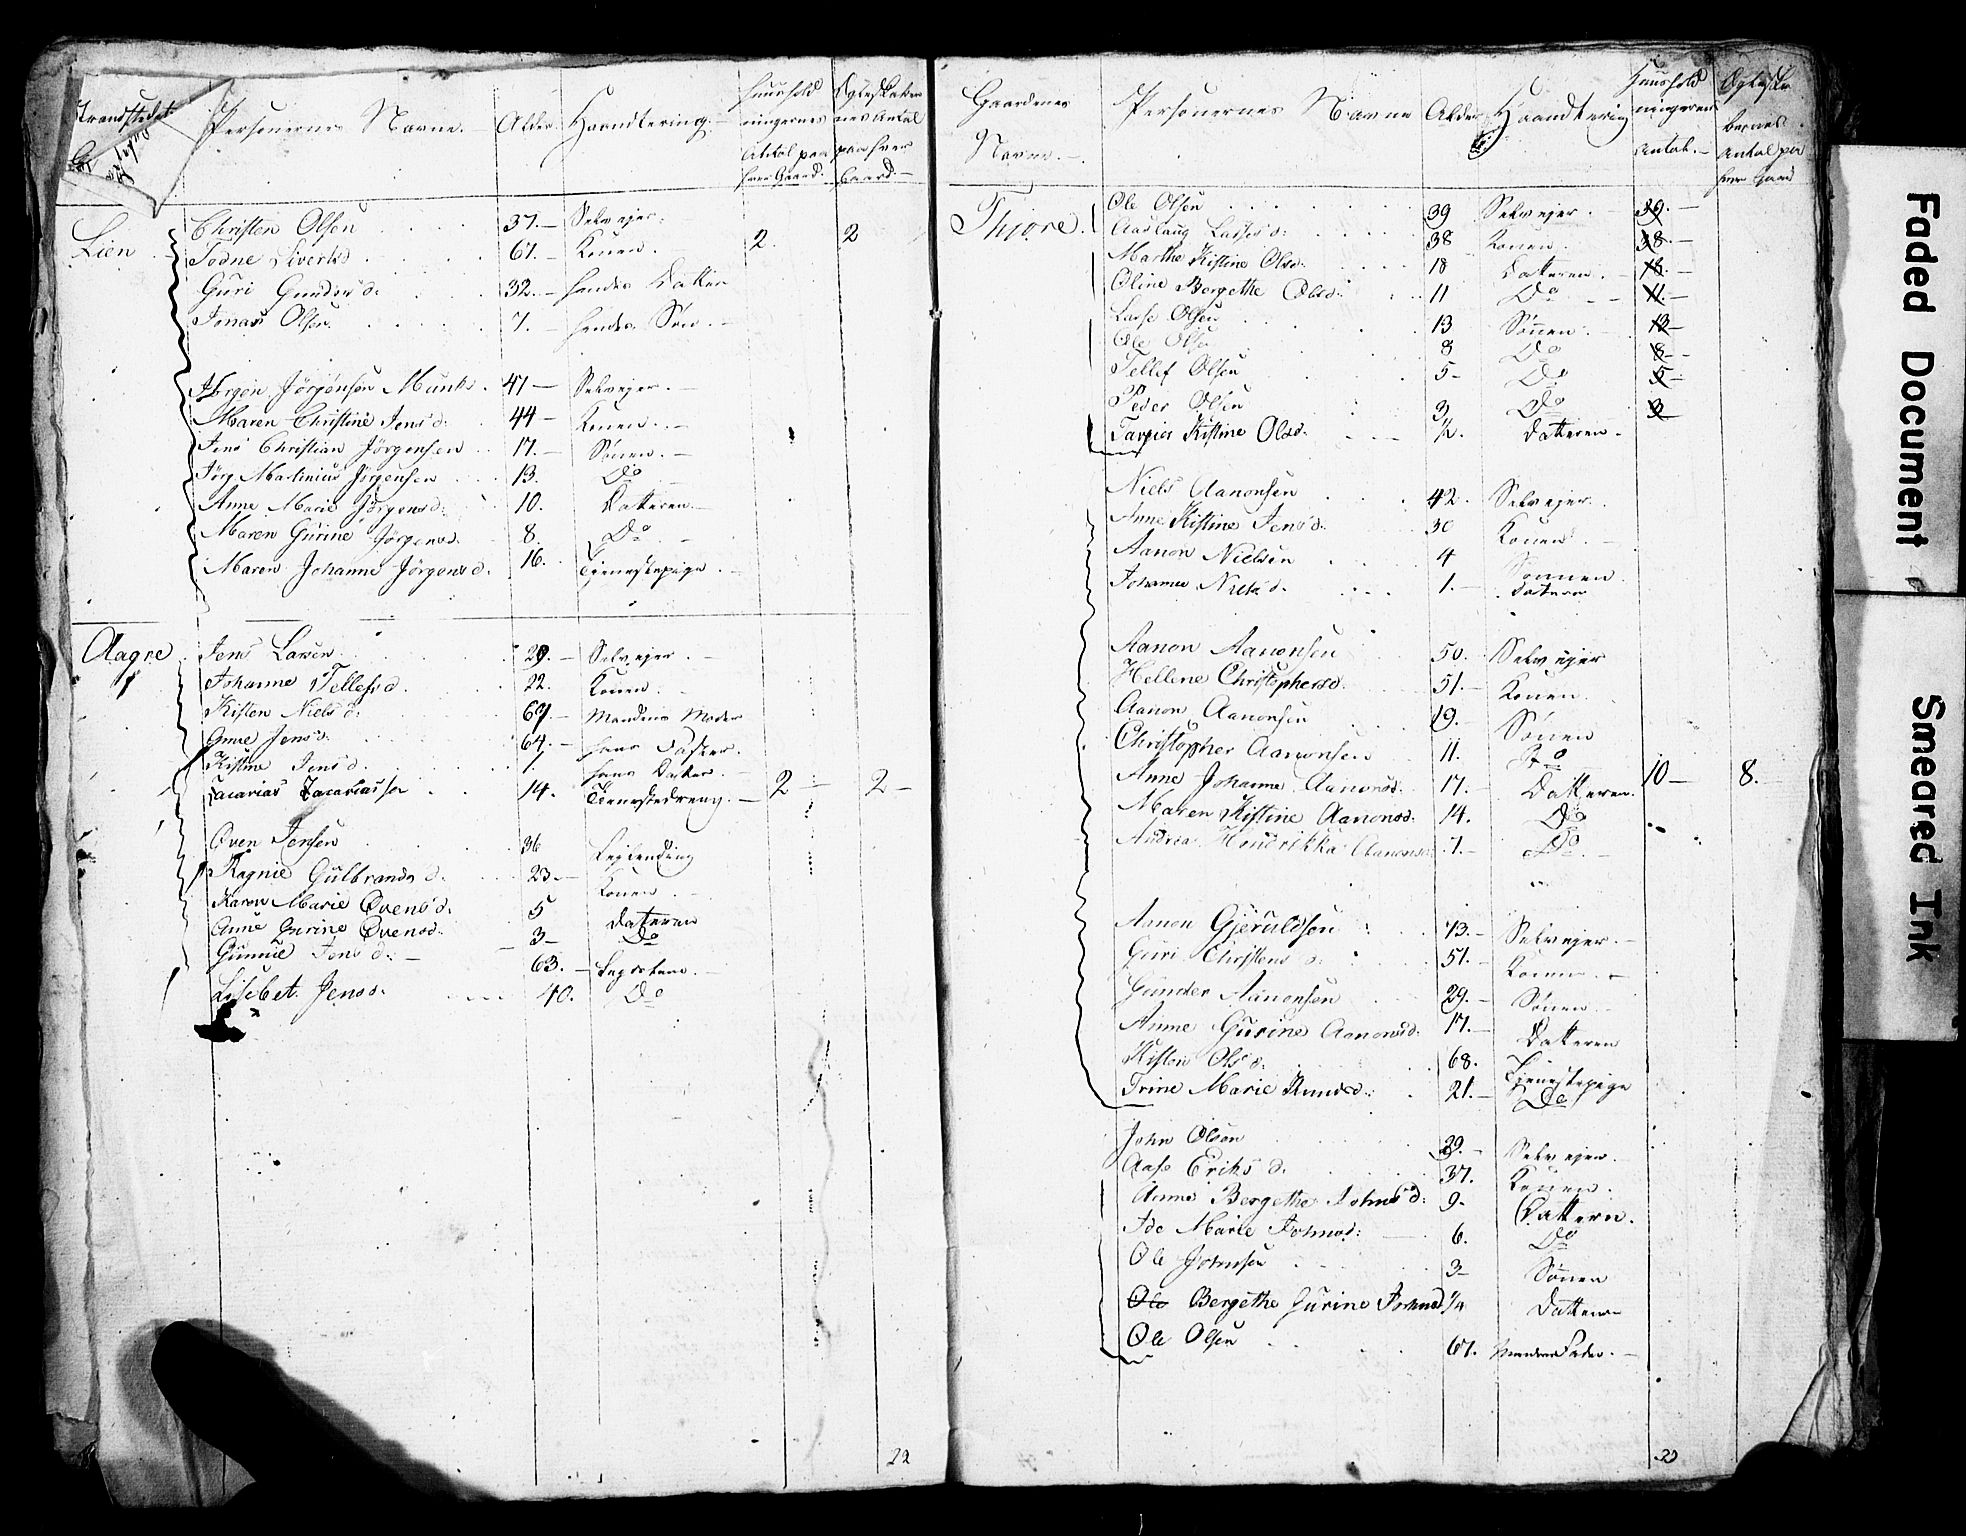 Personernes Navne. Alder Haandtering. Huushold ningernes Antal paa hver Gaard. Antal paa hver Gaard
Lien Christen Olsen 37. Selvejer.
Todne Siverts d 67. Konen. 2. 2
Guri Gunders d: 32. hendes Datter
Jonas Olsen 7. hendes Søn.
Jørgen Jörgensen Munk 47 Selvejer.
Maren Christine Jens d: 44 Konen.
Jens Christian Jörgensen 17. Sönen.
Jörg. Matinius Jörgensen 13. Do
Anne Marie Jörgensd: 10. Datteren
Maren Gurine Jörgensd. 8. Do
Maren Johanne Jörgensd. 16. Tjenestepige.
Aagre Jens Larsen 29. Selvejer.
Johanne Tellefsd. 22. Konen.
Kisten Niels d: 67. Mandens Moder
Anne Jensd. 64. hans Søster.
Kistine Jens d. 1. hans Datter.
Zacarias Zacariassen 14. Tjenestedreng. 2 2
Oven Jensen 36 Lejlending
Ragnie Gulbrands d. 23. Konen.
Karen Marie Ovens d. 5 Datteren
Anne Gurine Ovensd. 3 Do
Gunnie Jens d: 63. Legdslem.
Lisebet Jensd. 40. Do
22
Gaardenes Navne. Personernes Navne Alder Haandtering Huushold ningernes Antal. Antal paa hver Gaard
Thjore. Ole Olsen 39 Selvejer. 39.
Aaslaug Lasses d: 38 Konen. 38
Marthe Kistine Olsd. 18 Datteren. 18.
Oline Bergethe Olsd. 11 Do 11
Lasse Olsen 13 Sönen. 13
Ole Olsen 8 Do 8
Tellef Olsen 5 Do 5
Peder Olsen 3 Do 3
Kistine Olsd. 1/2. Datteren.
Niels Aanonsen 42. Selvejer.
Anne Kistine Jens d. 30 Konen.
Aanon Nielsen 4 Sönnen
Johanne Niels d. 1. Datteren
Aanon Aanonsen 50. Selvejer
Hellene Christophersd. 51. Konen.
Aanon Aanonsen 19. Sönen
Christopher Aanonsen 11. Do
Anne Johanne Aanonsd. 17. Datteren. 10 8.
Maren Kistine Aanonsd. 14. Do
Andrea Hendrikka Aanonsd. 7. Do
Aanon Gjeruldsen 73. Selvejer.
Guri Christens d. 51. Konen.
Gunder Aanonsen 29. Sönen.
Anne Gurine Aanonsd. 17. Datteren
Kisten Ols d. 68. Tjenestepige
Trine Marie Knudsd. 21. Do
John Olsen 39. Selvejer.
Aase Eriks d. 37. Konen.
Anne Bergethe Johns d: 9. Dattern.
Ide Marie Johnsd: 6. Do
Ole Johnsen 3 Sönen
Ole Bergethe Gurine Johnsd 1/4 Datteren
Ole Olsen 67. Mandens Fader.
Faded Document
Smeared Ink